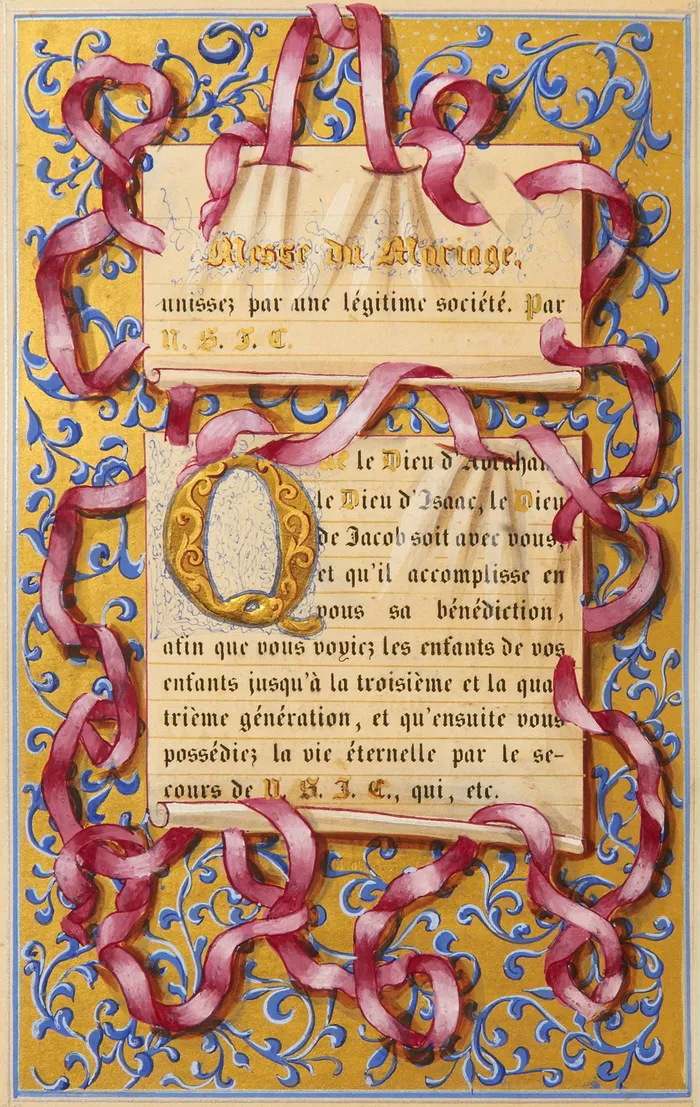 Messe du Mariage.
unissez par une légitime société. Par
N. S. J. C.
QUE le Dieu d'Abraham,
le Dieu d'Isaac, le Dieu
de Jacob soit avec vous,
et qu'il accomplisse en
vous sa bénédiction,
afin que vous voyiez les enfants de vos
enfants jusqu'à la troisième et la qua
trième génération, et qu'ensuite vous
possédiez la vie éternelle par le se-
cours de N. S. J. C., qui, etc.